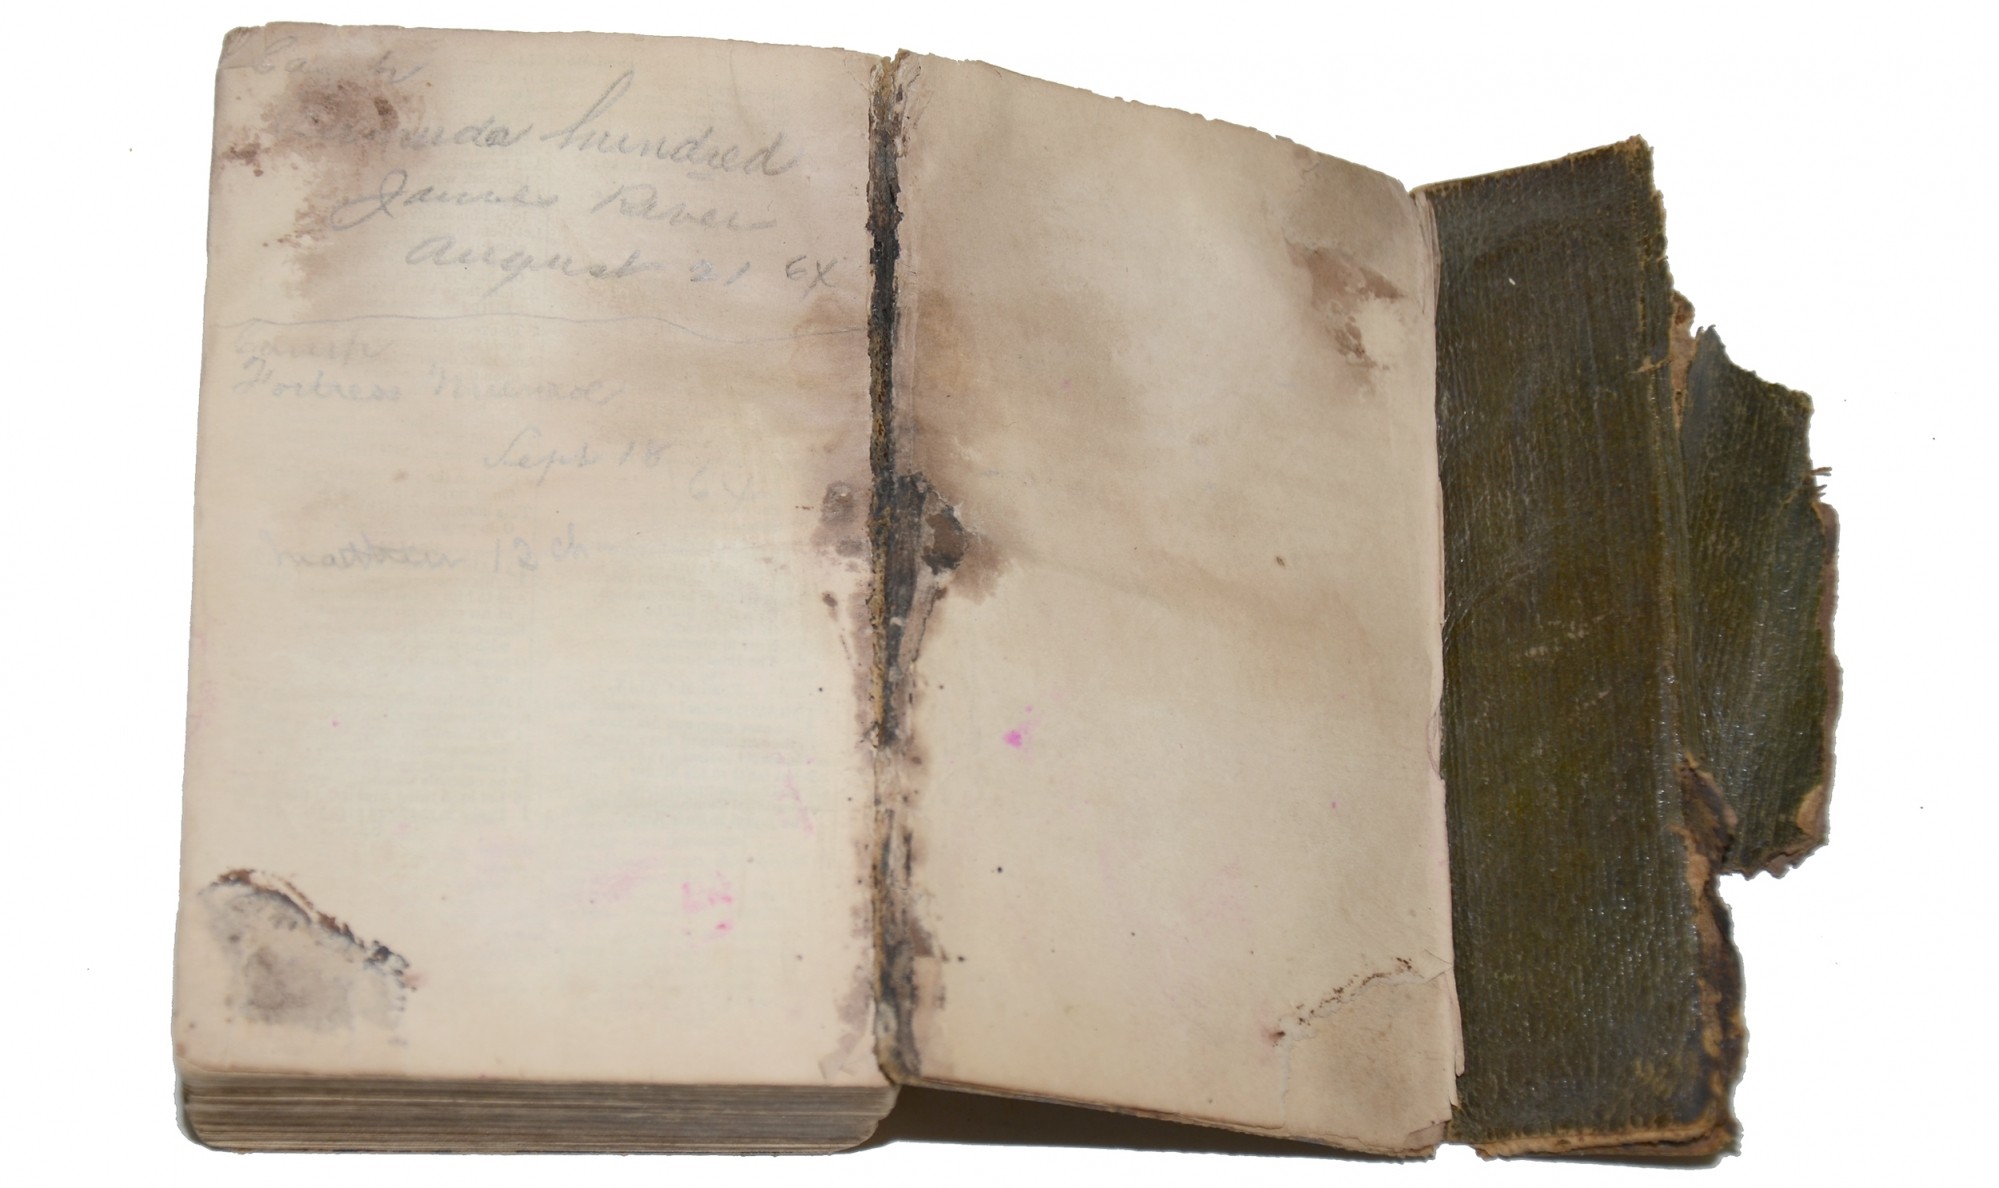 Camp
hundred
James River
August 21 64
Camp
Fortress Monroe
Sept 18
64
Matthew 12 ch